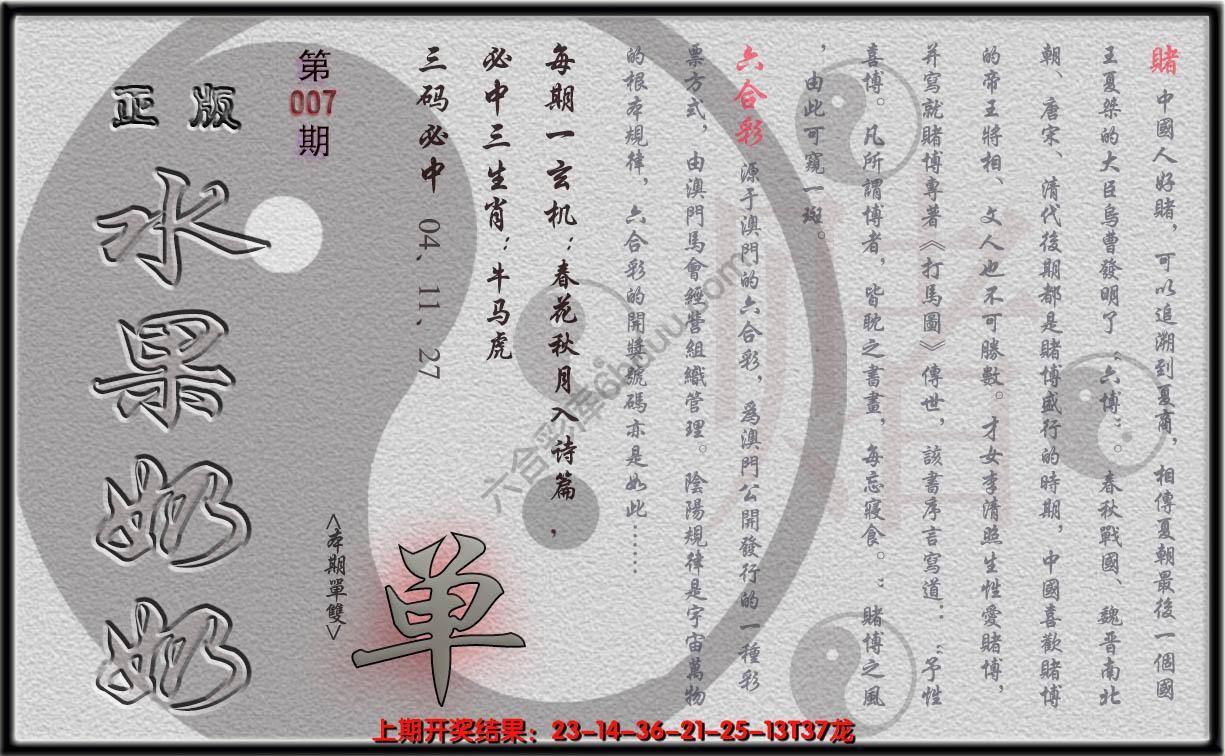 賭 中國人好賭，可以追溯到夏商，相傳夏朝最後一個國
王夏桀的大臣烏曹發明了“六博”。春秋戰國、魏晋南北
朝、唐宋、清代後期都是賭博盛行的時期，中國喜歡賭博
的帝王將相、文人也不可勝數。才女李清照生性愛賭博，
并寫就賭博專著《打馬圖》傳世，該書序言寫道：“予性
喜博。凡所謂博者，皆耽之書畫，每忘寢食。”賭博之風
，由此可窺一斑。
六合彩 源于澳門的六合彩，爲澳門公開發行的一種彩
票方式，由澳門馬會經營組織管理。陰陽規律是宇宙萬物
的根本規律，六合彩的開獎號碼亦是如此……
每期一玄机：春花秋月入诗篇，
必中三生肖：牛马虎
三码必中 04. 11. 27
第007期
正版
水果奶奶
<本期單雙>
单
上期开奖结果：23-14-36-21-25-13T37龙
賭